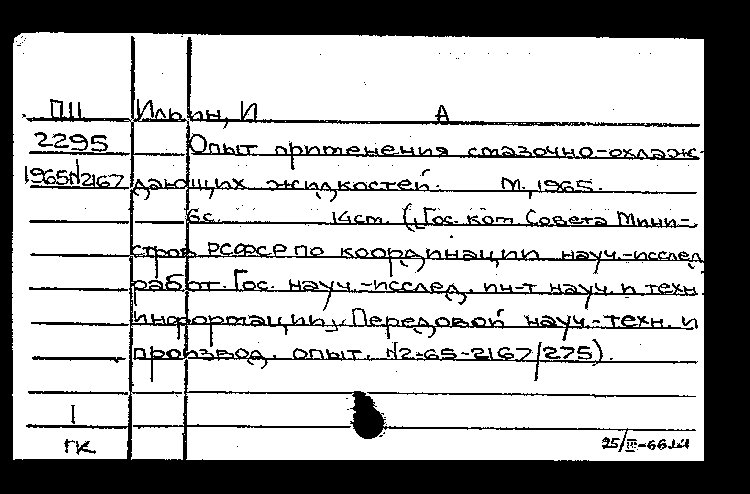 П11 Ильин, И А
2295 Опыт применения смазочно-охлаж-
1965N2167 дающих жидкостей. М., 1965.
6с. 14см. (Гос. ком. Совета Мини-
стров РСФСР по координации науч.-исслед.
работ. Гос. науч.-исслед. ин-т науч. и техн.
информации). Передовой науч.-техн. и
производ. опыт. N2-65-2167/275).
1
ГК 25/III-66